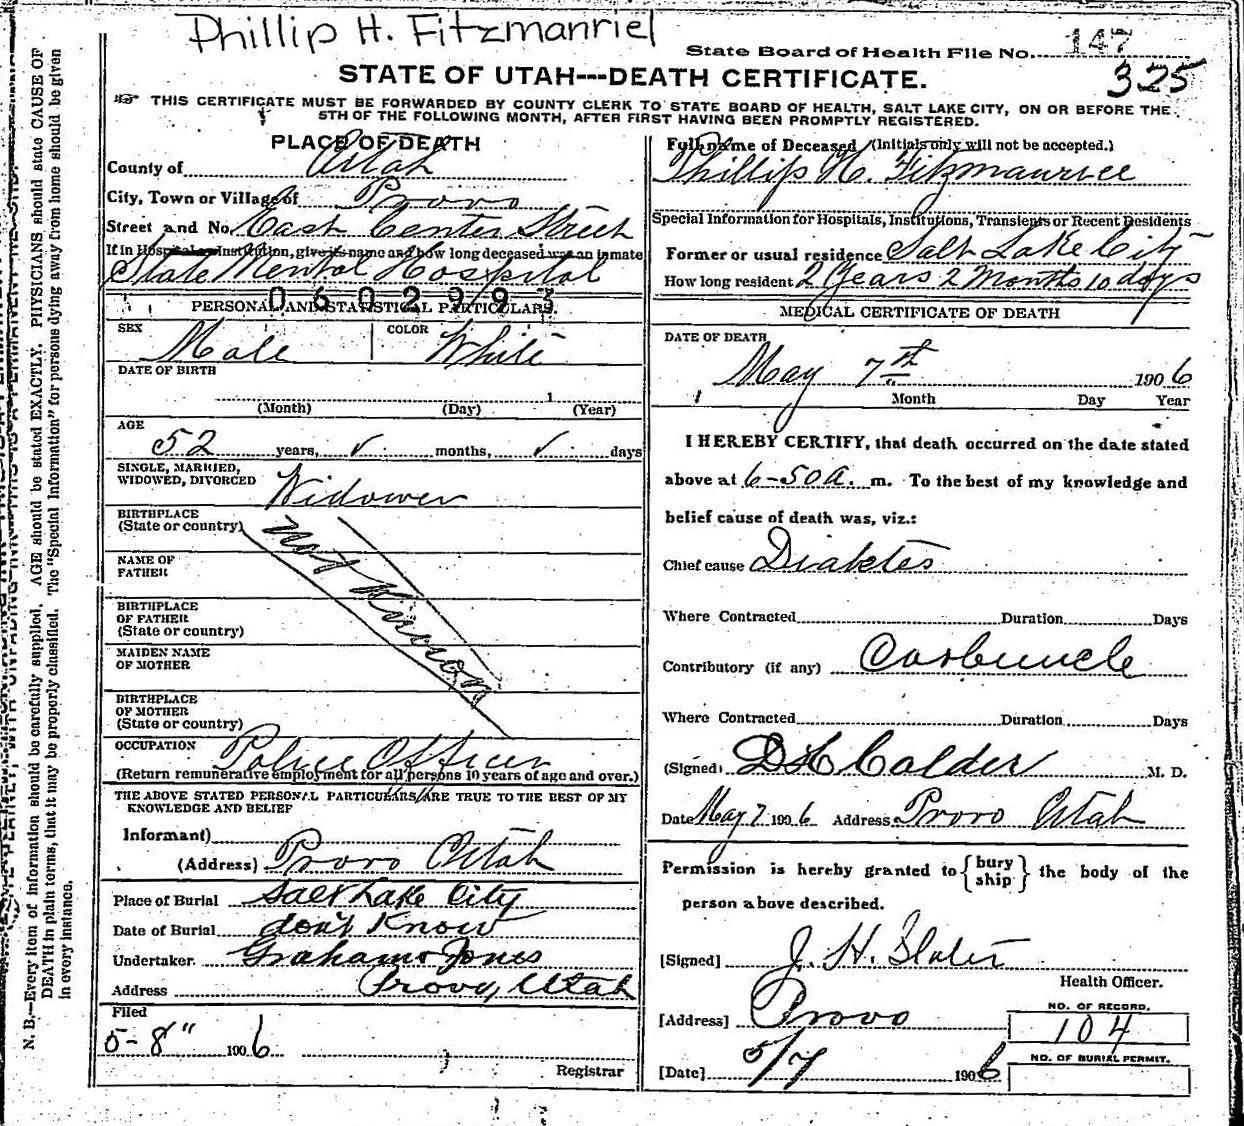 Phillip H. Fitzmanriel
State Board of Health File No. 147
325
STATE OF UTAH---DEATH CERTIFICATE.
THIS CERTIFICATE MUST BE FORWARDED BY COUNTY CLERK TO STATE BOARD OF HEALTH, SALT LAKE CITY, ON OR BEFORE THE
5TH OF THE FOLLOWING MONTH, AFTER FIRST HAVING BEEN PROMPTLY REGISTERED.
PLACE OF DEATH
County of Utah
City, Town or Village of Provo
Street and No. East Center Street
If in Hospital or Institution, give its name and how long deceased was an inmate
State Mental Hospital
0602993
PERSONAL AND STATISTICAL PARTICULARS.
SEX Male COLOR White
DATE OF BIRTH
(Month) (Day) 1 (Year)
AGE
52 years, ✓ months, ✓ days
SINGLE, MARRIED,
WIDOWED, DIVORCED Widower
BIRTHPLACE
(State or country)
not Known
NAME OF
FATHER
BIRTHPLACE
OF FATHER
(State or country)
MAIDEN NAME
OF MOTHER
BIRTHPLACE
OF MOTHER
(State or country)
OCCUPATION Police Officer
(Return remunerative employment for all persons 10 years of age and over.)
THE ABOVE STATED PERSONAL PARTICULARS ARE TRUE TO THE BEST OF MY
KNOWLEDGE AND BELIEF
Informant)
(Address) Provo Utah
Place of Burial Salt Lake City
Date of Burial don't Know
Undertaker. Graham & Jones
Address Provo, Utah
Filed
5-8" 1906
Registrar
Full name of Deceased (Initials only will not be accepted.)
Phillip H. Fitzmaurice
Special Information for Hospitals, Institutions, Transients or Recent Residents
Former or usual residence Salt Lake City
How long resident 2 Years 2 Months 10 days
MEDICAL CERTIFICATE OF DEATH
DATE OF DEATH
May 7th 1906
Month Day Year
I HEREBY CERTIFY, that death occurred on the date stated
above at 6-50 a. m. To the best of my knowledge and
belief cause of death was, viz.:
Chief cause Diabetes
Where Contracted Duration Days
Contributory (if any) Carbuncle
Where Contracted Duration Days
(Signed) D H Calder M. D.
Date May 7 1906 Address Provo Utah
Permission is hereby granted to {bury
ship} the body of the
person above described.
[Signed] J. H. Slater
Health Officer.
[Address] Provo
NO. OF RECORD.
104
[Date] 5/7 1906
NO. OF BURIAL PERMIT.
N. B.—Every item of information should be carefully supplied. AGE should be stated EXACTLY. PHYSICIANS should state CAUSE OF
DEATH in plain terms, that it may be properly classified. The "Special Information" for persons dying away from home should be given
in every instance.